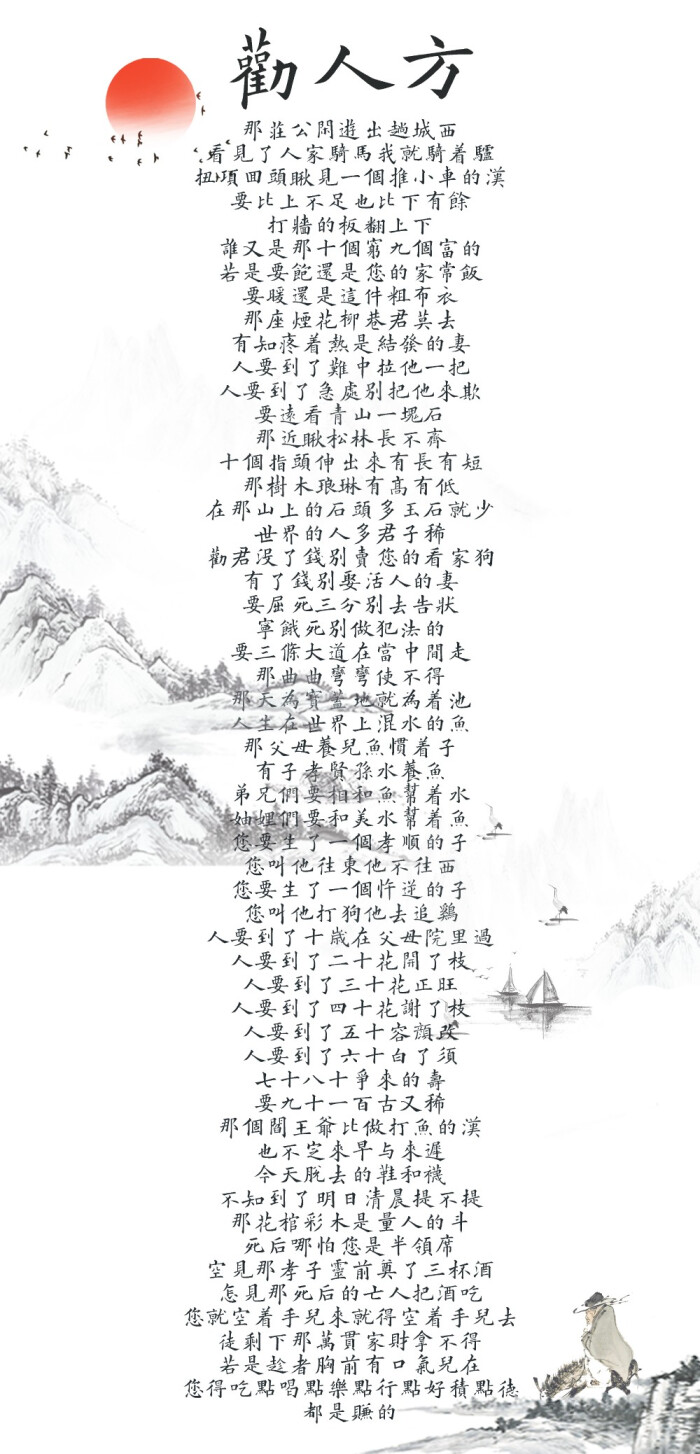 勸人方
那莊公閒遊出趟城西
看見了人家騎馬我就騎着驢
扭項回頭瞅見一個推小車的漢
要比上不足也比下有餘
打牆的板翻上下
誰又是那十個窮九個富的
若是要飽還是您的家常飯
要暖還是這件粗布衣
那座煙花柳巷君莫去
有知疼着熱是結發的妻
人要到了難中拉他一把
人要到了急處別把他來欺
要遠看青山一塊石
那近瞅松林長不齊
十個指頭伸出來有長有短
那樹木琅琳有高有低
在那山上的石頭多玉石就少
世界的人多君子稀
勸君沒了錢別賣您的看家狗
有了錢別娶活人的妻
要屈死三分別去告狀
寧餓死別做犯法的
要三條大道在當中間走
那曲曲彎彎使不得
那天為寶蓋地就為着池
人生在世界上混水的魚
那父母養兒魚慣着子
有子孝賢孫水養魚
弟兄們要相和魚幫着水
妯娌們要和美水幫着魚
您要生了一個孝順的子
您叫他往東他不往西
您要生了一個忤逆的子
您叫他打狗他去追鷄
人要到了十歲在父母院里過
人要到了二十花開了枝
人要到了三十花正旺
人要到了四十花謝了枝
人要到了五十容顏改
人要到了六十白了須
七十八十爭來的壽
要九十一百古又稀
那個閻王爺比做打魚的漢
也不定來早与來遲
今天脫去的鞋和襪
不知到了明日清晨提不提
那花棺彩木是量人的斗
死后哪怕您是半領席
空見那孝子靈前奠了三杯酒
怎見那死后的亡人把酒吃
您就空着手兒來就得空着手兒去
徒剩下那萬貫家財拿不得
若是趁者胸前有口氣兒在
您得吃點唱點樂點行點好積點德
都是賺的